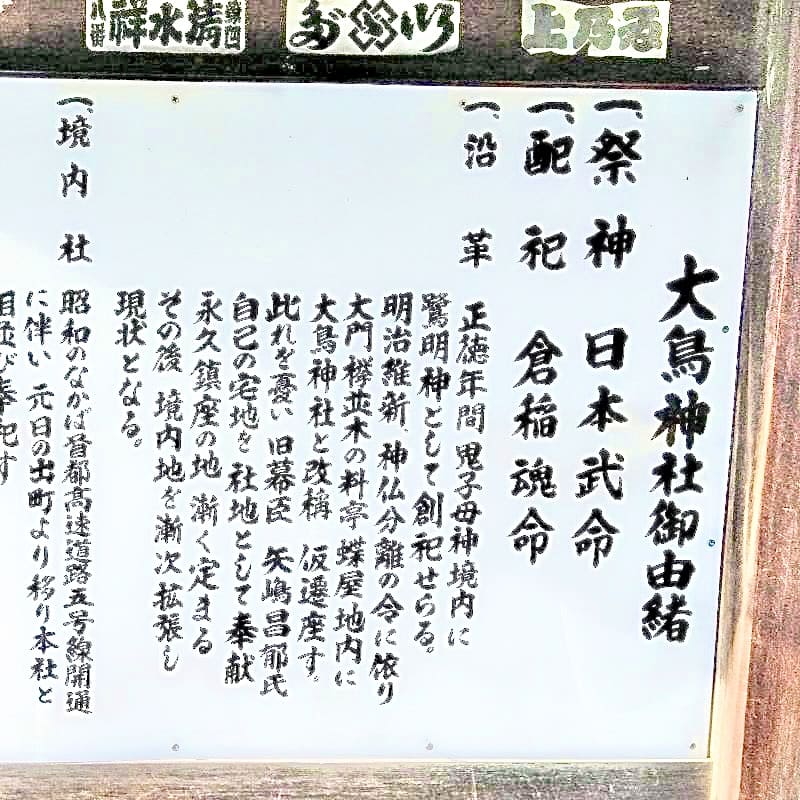 大鳥神社御由緒
一、祭神 日本武命
一、配祀 倉稲魂命
一、沿革 正徳年間 鬼子母神境内に
鷺明神として創祀せらる。
明治維新 神仏分離の令に依り
大門欅並木の料亭 蝶屋地内に
大鳥神社と改稱 仮遷座す。
此れを憂い 旧幕臣 矢嶋昌郁氏
自己の宅地を 社地として奉献
永久鎮座の地 漸く定まる
その後 境内地を漸次拡張し
現状となる。
一、境内社 昭和のなかば首都高速道路五号線開通
に伴い 元日の出町より移り本社と